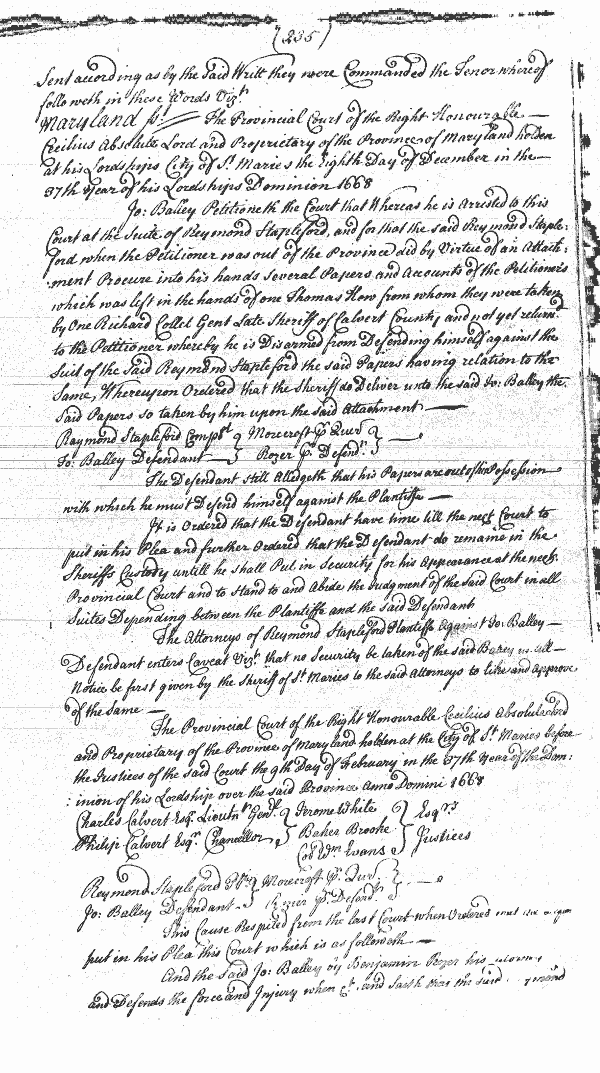 (235)
Sent according as by the Said Writt they were Commanded the Tenor whereof
followeth in these Words Vizt.
Maryland ss: The Provincial Court of the Right Honourable
Cecilius Absolute Lord and Proprietary of the Province of Maryland holden
at his Lordships City of St. Maries the Eighth Day of December in the
37th Year of his Lordships Dominion 1668
Jo: Balley Petitioneth the Court that Whereas he is Arrested to this
Court at the Suite of Reymond Stapleford, and for that the said Reymond Staple:
ford when the Petitioner was out of the Province did by Virtue of an Attach:
:ment Procure into his hands Several Papers and Accounts of the Petitioners
which was left in the hands of one Thomas How from whom they were taken
by One Richard Collet Gent Late Sheriff of Calvert County and not yet return'd
to the Petitioner whereby he is Disarmed from Defending himself against the
Suit of the Said Reymond Stapleford the said Papers having relation to the
Same, Whereupon Ordered that the Sheriff do Deliver unto the said Jo: Balley the
Said Papers so taken by him upon the said Attachment
Raymond Stapleford Complt } Morecroft pr. Quer }
Jo: Balley Defendant } Rozer pr. Defendt. }
The Defendant still Alledgeth that his Papers are out of his Possession
with which he must Defend himself against the Plantiffe
It is Ordered that the Defendant have time till the next Court to
put in his Plea and further Ordered that the Defendant do remaine in the
Sheriffs Custody untill he shall Put in Security for his Appearance at the next
Provincial Court and to Stand to and Abide the Judgment of the Said Court in all
Suites Depending between the Plantiffe and the Said Defendant
The Attorneys of Reymond Stapleford Plantiffe Against Jo: Balley
Defendant enters Caveat Vizt. that no Security be taken of the said Balley untill
Notice be first given by the Sheriff of St Maries to the said Attorneys to like and Approve
of the Same
The Provincial Court of the Right Honourable Cecilius Absolute Lord
and Proprietary of the Province of Maryland holden at the City of St Maries before
the Justices of the said Court the 9th Day of February in the 37th Year of the Dom:
:inion of his Lordship over the said Province Anno Domini 1668
Charles Calvert Esqr. Lieutnt Genll. } Jerome White } Esqrs
Philip Calvert Esqr. Chancellor } Baker Brooke } Justices
Coll Wm Evans
Reymond Stapleford Plt } Morecroft pr. Quer }
Jo: Balley Defendant } Rozer pr. Defendt. }
This Cause Respited from the last Court when Ordered
put in his Plea this Court which is as followeth
And the Said Jo: Balley by Benjamin Rozer his Attorney
and Defends the force and Injury when &c. and Saith that the said